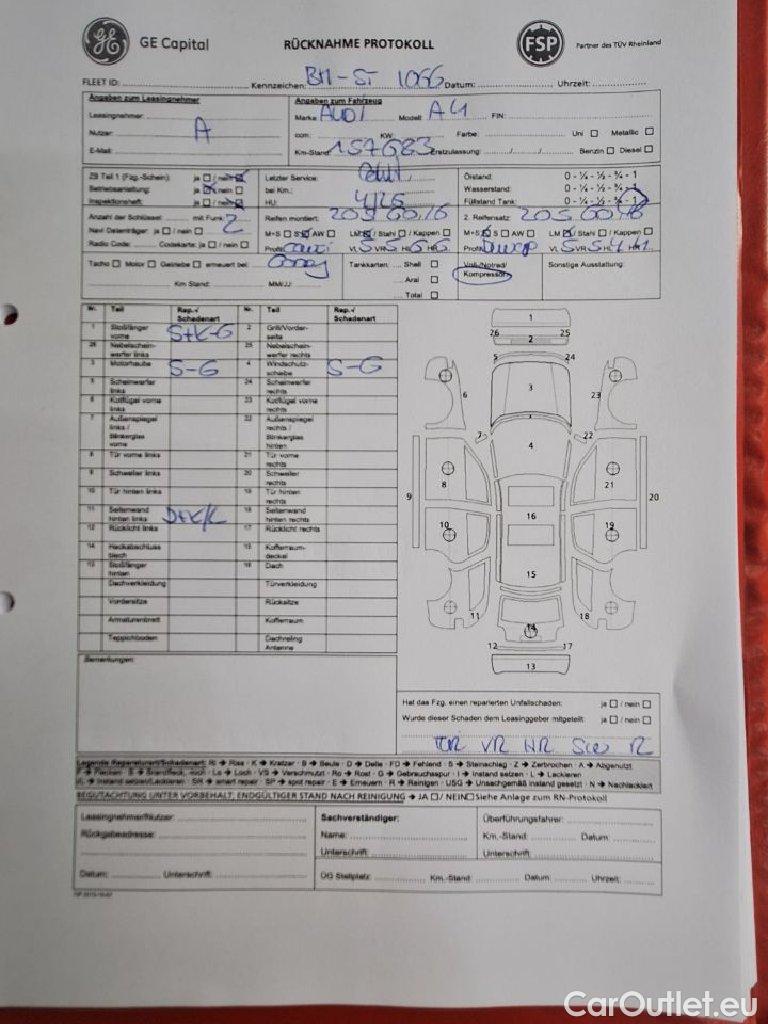 GE Capital
RÜCKNAHME PROTOKOLL
FSP
Partner des TÜV Rheinland
FLEET ID: Kennzeichen: BM-ST 1066 Datum: Uhrzeit:
Angaben zum Leasingnehmer
Angaben zum Fahrzeug
Leasingnehmer: A
Marke: AUDI Modell: A4 FIN:
Nutzer:
ccm: KW: Farbe: Uni Metallic
E-Mail:
Km-Stand: 157683 Erstzulassung: / / Benzin Diesel
ZB Teil 1 (Fzg.-Schein): ja / nein
Letzter Service:
Ölstand: 0 - ¼ - ½ - ¾ - 1
Betriebsanleitung: ja / nein
bei Km.:
Wasserstand: 0 - ¼ - ½ - ¾ - 1
Inspektionsheft: ja / nein
HU: 4/26
Füllstand Tank: 0 - ¼ - ½ - ¾ - 1
Anzahl der Schlüssel mit Funk: 2
Reifen montiert: 205 60 16
2. Reifensatz: 205 60 16
Navi Datenträger: ja / nein
M+S S AW LM / Stahl / Kappen
M+S S AW LM / Stahl / Kappen
Radio Code: Codekarte: ja / nein
Profil: VL 5 VR 5
Profil: VL 5 VR 5
Tacho Motor Getriebe erneuert bei:
Tankkarten: Shell
Kompressor
Sonstige Ausstattung:
Aral
Km Stand: MM/JJ:
Total
Nr. Teil Rep.-/ Schadenart Nr. Teil Rep.-/ Schadenart
1 Stoßfänger vorne S+K-G 2 Grill/Vorder-seite
26 Nebelschein-werfer links 25 Nebelschein-werfer rechts
3 Motorhaube S-G 4 Windschutz-scheibe S-G
5 Scheinwerfer links 24 Scheinwerfer rechts
6 Kotflügel vorne links 23 Kotflügel vorne rechts
7 Außenspiegel links / Blinkerglas vorne 22 Außenspiegel rechts / Blinkerglas hinten
8 Tür vorne links 21 Tür vorne rechts
9 Schweller links 20 Schweller rechts
10 Tür hinten links 19 Tür hinten rechts
11 Seitenwand hinten links 18 Seitenwand hinten rechts
12 Rücklicht links 17 Rücklicht rechts
14 Heckabschluss blech 15 Kofferraum-deckel
13 Stoßfänger hinten 16 Dach
Dachverkleidung Türverkleidung
Vordersitze Rücksitze
Armaturenbrett Kofferraum
Teppichboden Dachreling Antenne
1
26 25
2
5 24
3
6 23
7 22
4
8 21
9 20
16
10 19
15
11 18
14
12 17
13
Bemerkungen:
Hat das Fzg. einen reparierten Unfallschaden: ja / nein
Wurde dieser Schaden dem Leasinggeber mitgeteilt: ja / nein
VR HR R
Legende Reparaturart/Schadenart: Ri → Riss · K → Kratzer · B → Beule · D → Delle · FD → Fehlend · S → Steinschlag · Z → Zerbrochen · A → Abgenutzt
F → Flecken · B → Brandfleck, -loch · Lo → Loch · VS → Verschmutzt · Ro → Rost · G → Gebrauchsspur · I → Instand setzen · L → Lackieren
IL → Instand setzen/Lackieren · SR → smart repair · SP → spot repair · E → Erneuern · R → Reinigen · USG → Unsachgemäß instand gesetzt · N → Nachlackiert
BEGUTACHTUNG UNTER VORBEHALT, ENDGÜLTIGER STAND NACH REINIGUNG → JA / NEIN Siehe Anlage zum RN-Protokoll
Leasingnehmer/Nutzer:
Sachverständiger:
Überführungsfahrer:
Rückgabeadresse:
Name:
Km.-Stand: Datum:
Unterschrift:
Unterschrift:
Datum: Unterschrift:
OG Stellplatz: Km.-Stand: Datum: Uhrzeit:
CarOutlet.eu